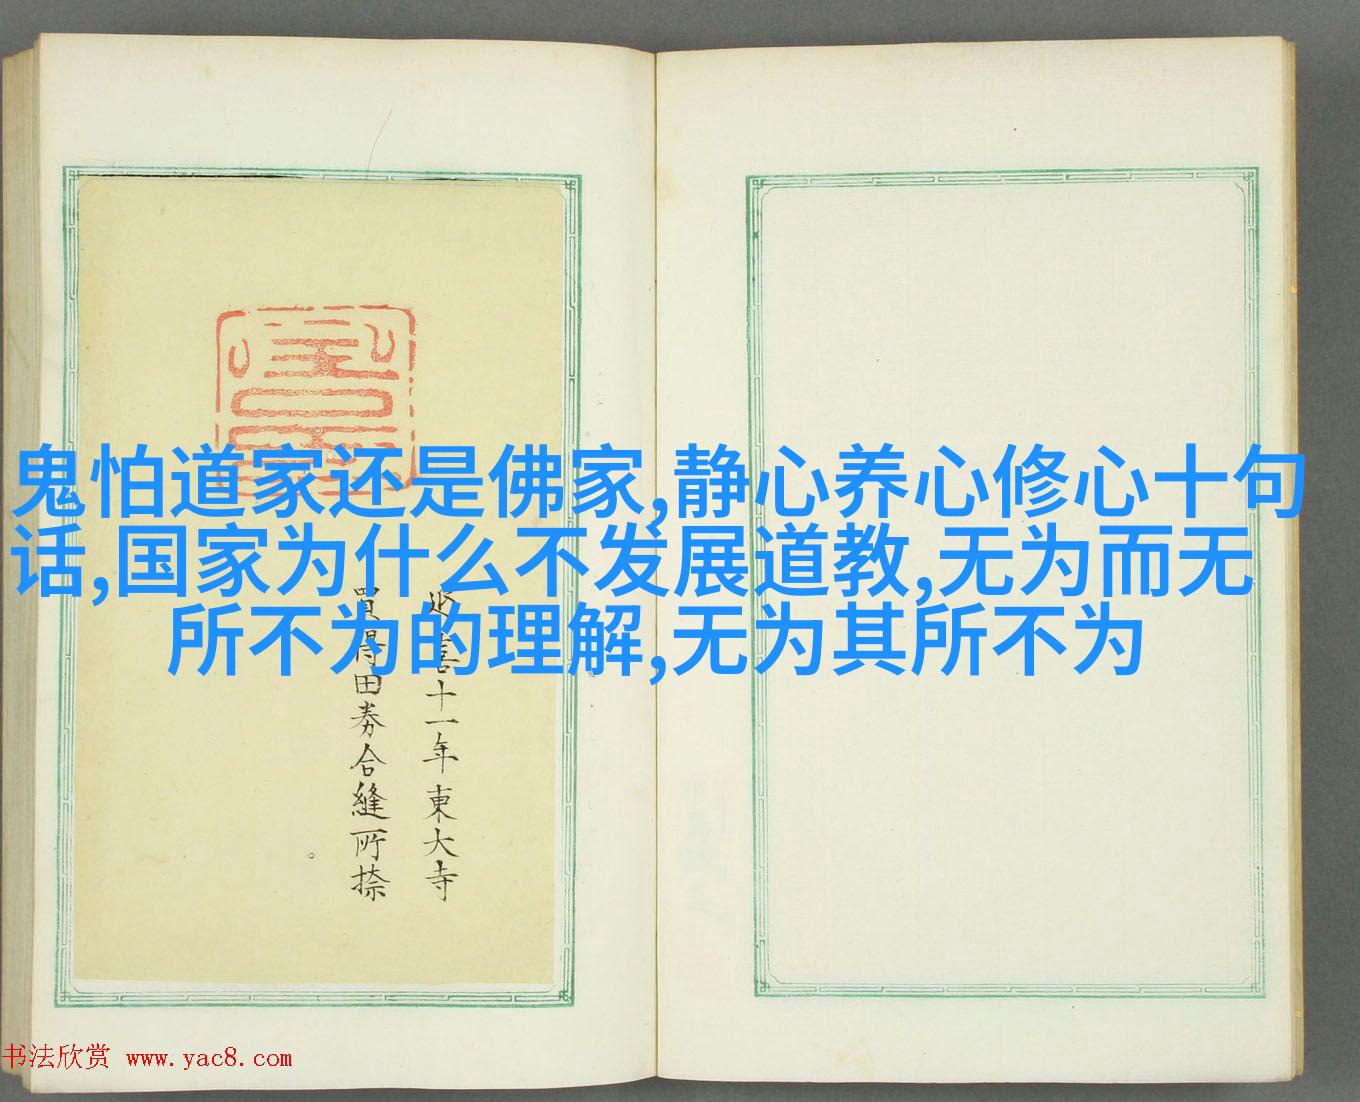 鬼怕道家还是佛家,静心养心修心十句
话,国家为什么不发展道教,无为而无
所不为的理解,无为其所不为
延喜十一年東大寺
買得田券合縫所捺
书法欣赏 www.yac8.com